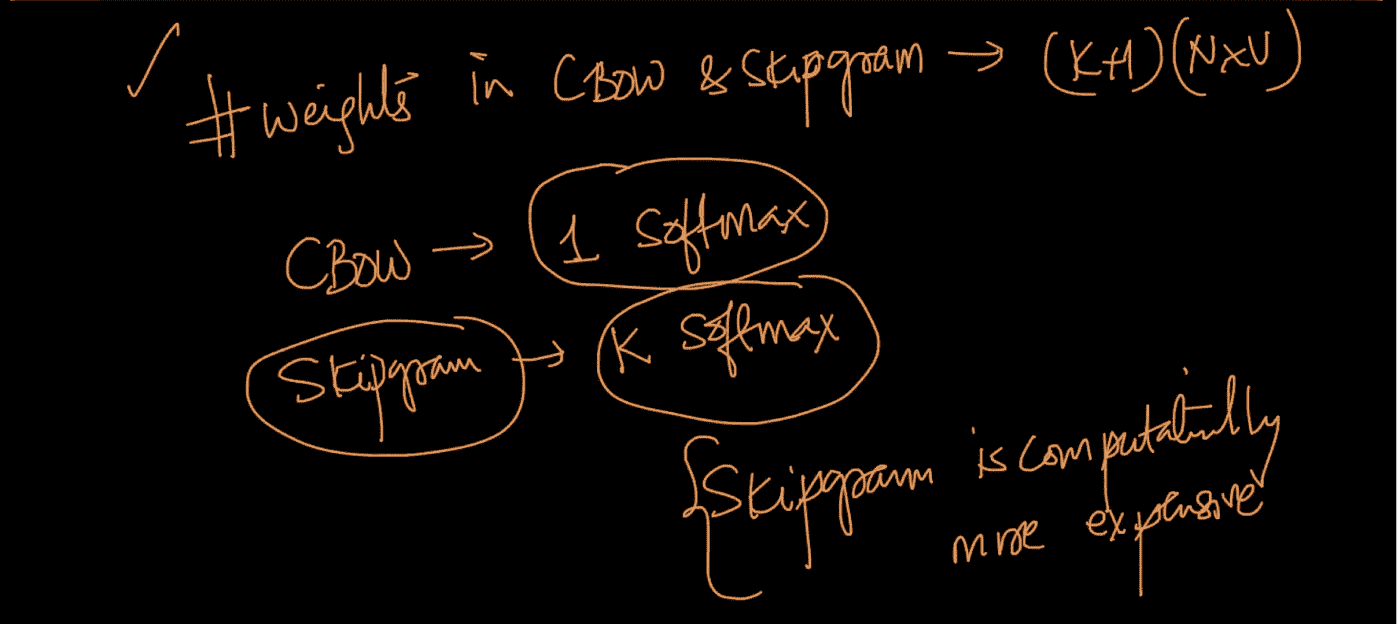 ✓ #weights in CBOW & Skipgram → (K+1)(N×V)
CBOW → 1 Softmax
Skipgram → K Softmax
{Skipgram is computationally
more expensive